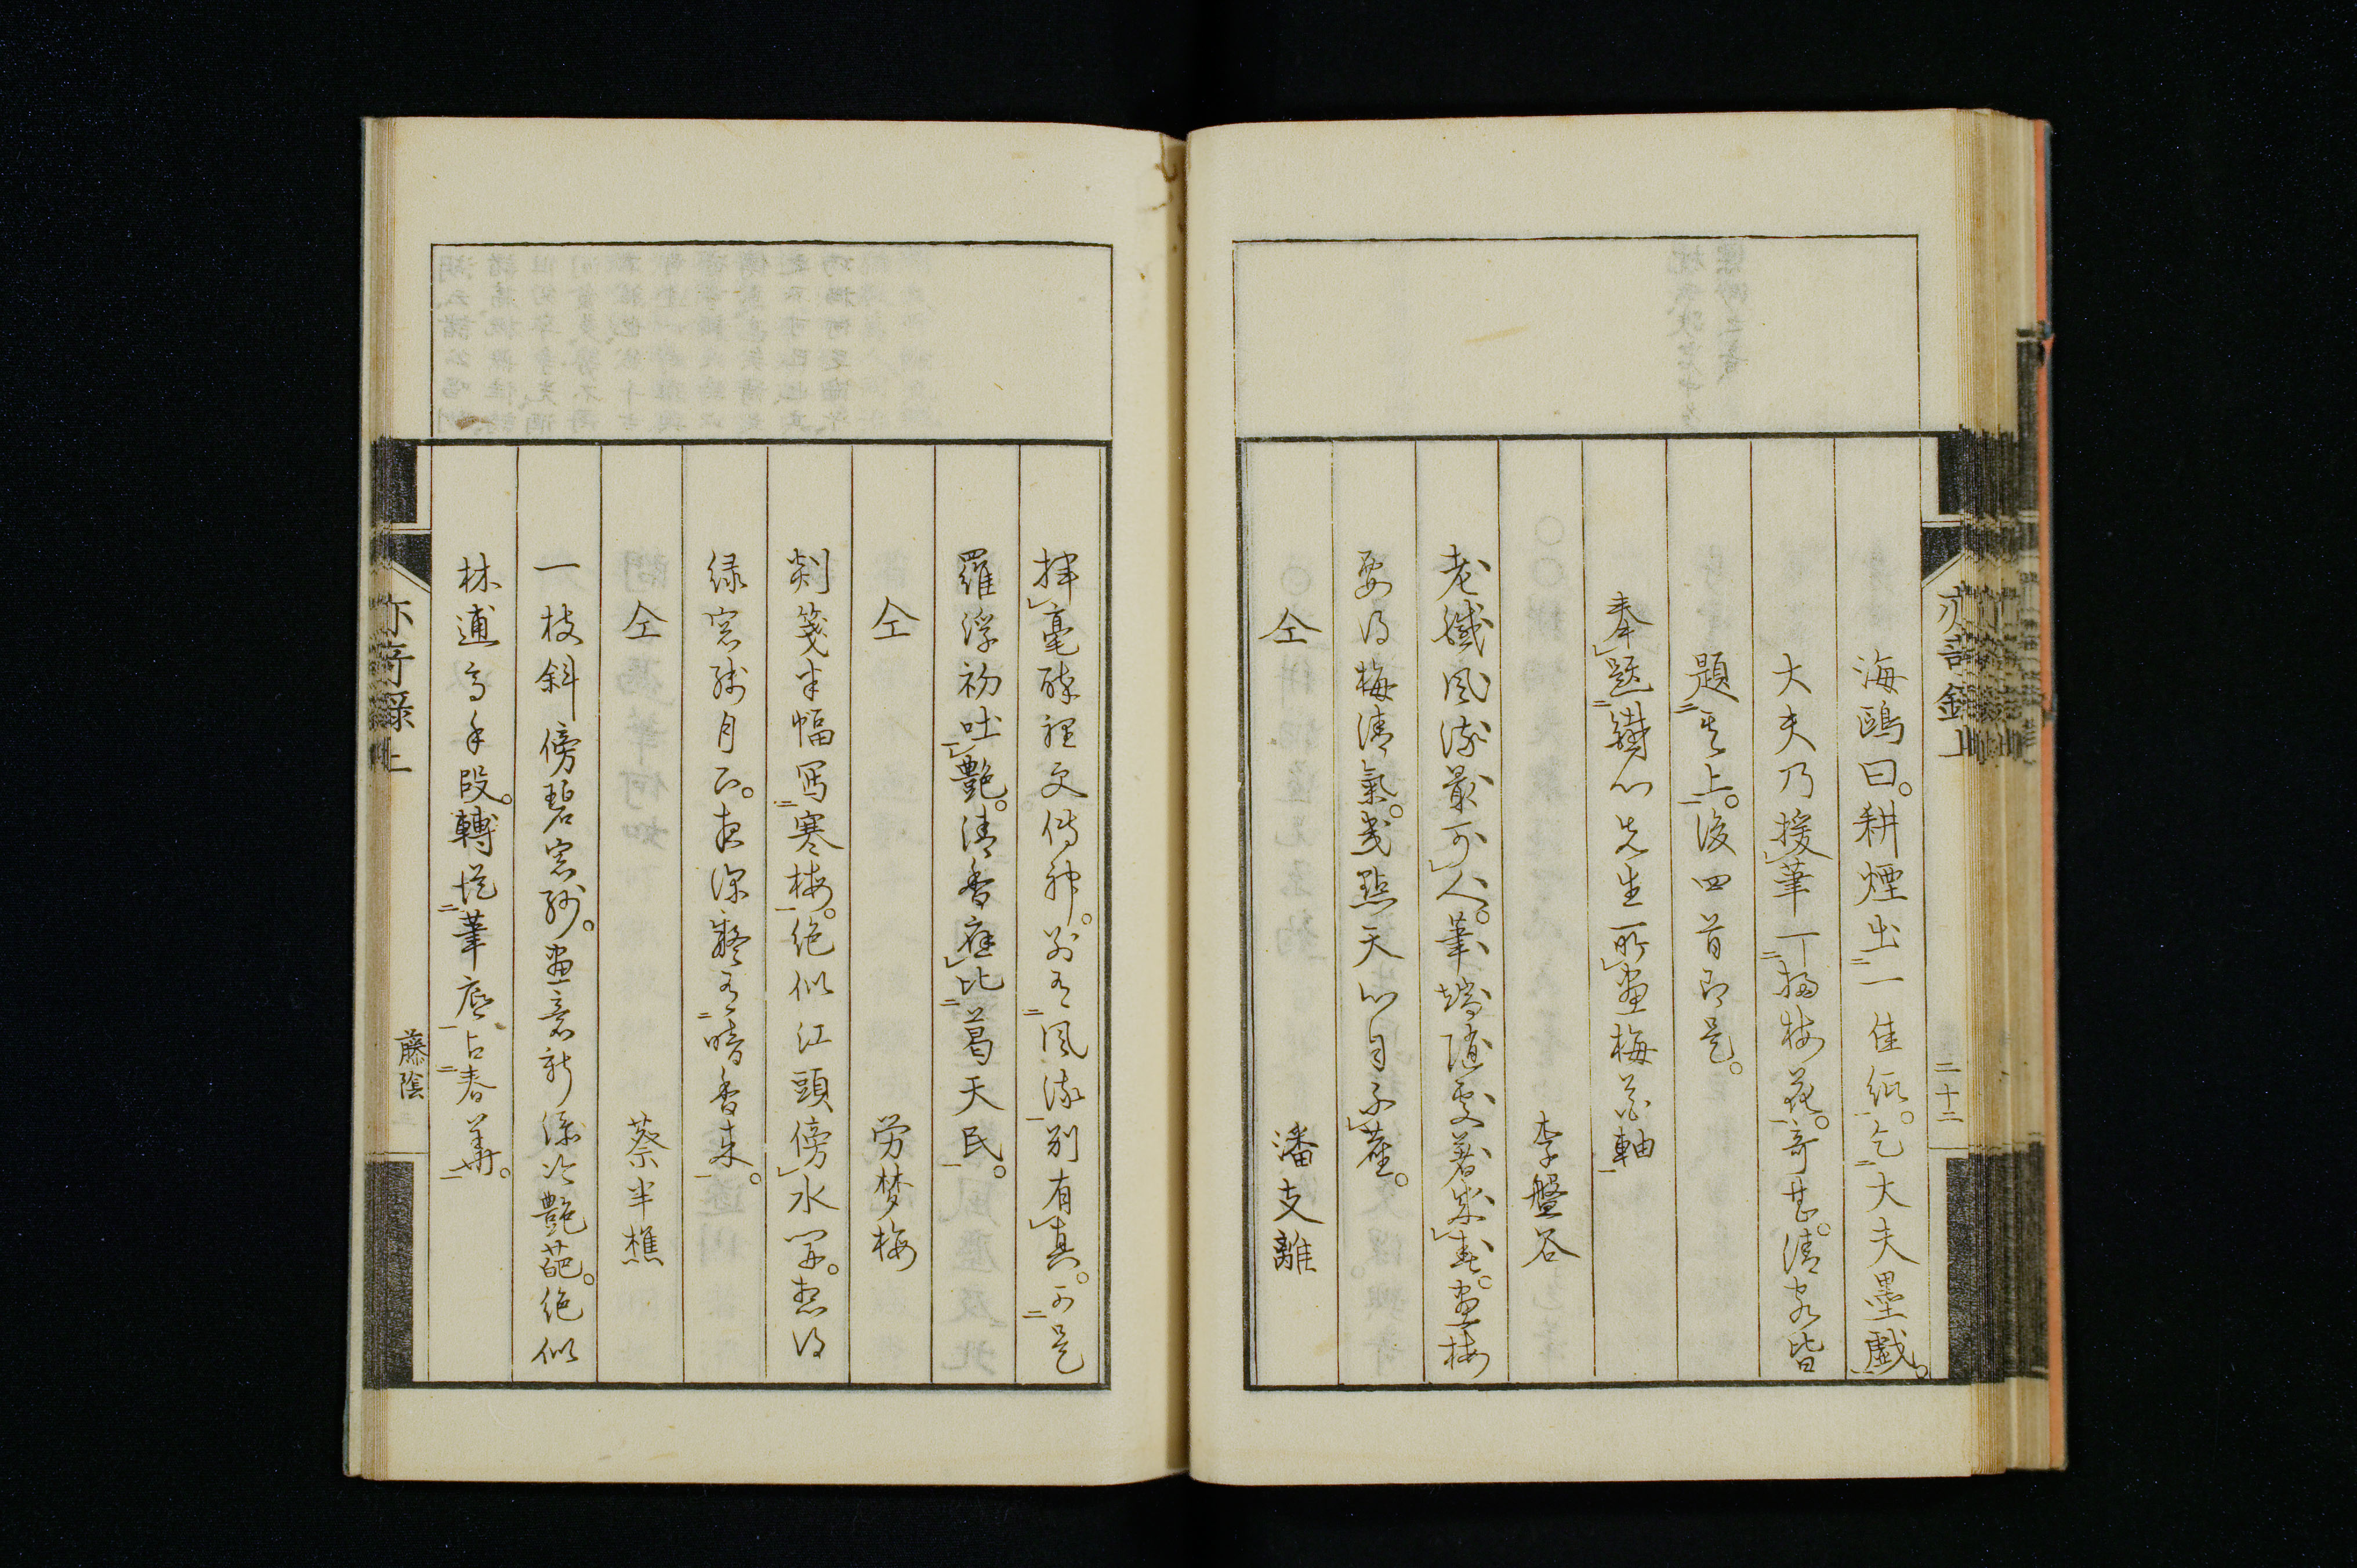 海鷗曰。耕煙出一佳紙。乞大夫墨戲。
大夫乃援筆一掃梅花。奇甚。清客皆
題其上。後四首即是。
奉題鐵心先生所畫梅花軸
李盤谷
老鐵風流最可人。筆端隨處著米春。畫梅
要得梅清氣。幾點天心月子產。
仝
潘支離
揮毫醉裡更傳神。別有風流別有真。可是
羅浮初吐艷。清香應比葛天民。
仝
労梦梅
剡箋半幅寫寒梅。絶似江頭傍水開。想得
緑窓殘月下。夜深疑有暗香来。
仝
蔡半樵
一枝斜傍碧窓紗。畫意新添冷艷葩。絶似
林逋高手段。轉從筆底占春華。
亦奇録上
二十二
亦奇録上
藤陰